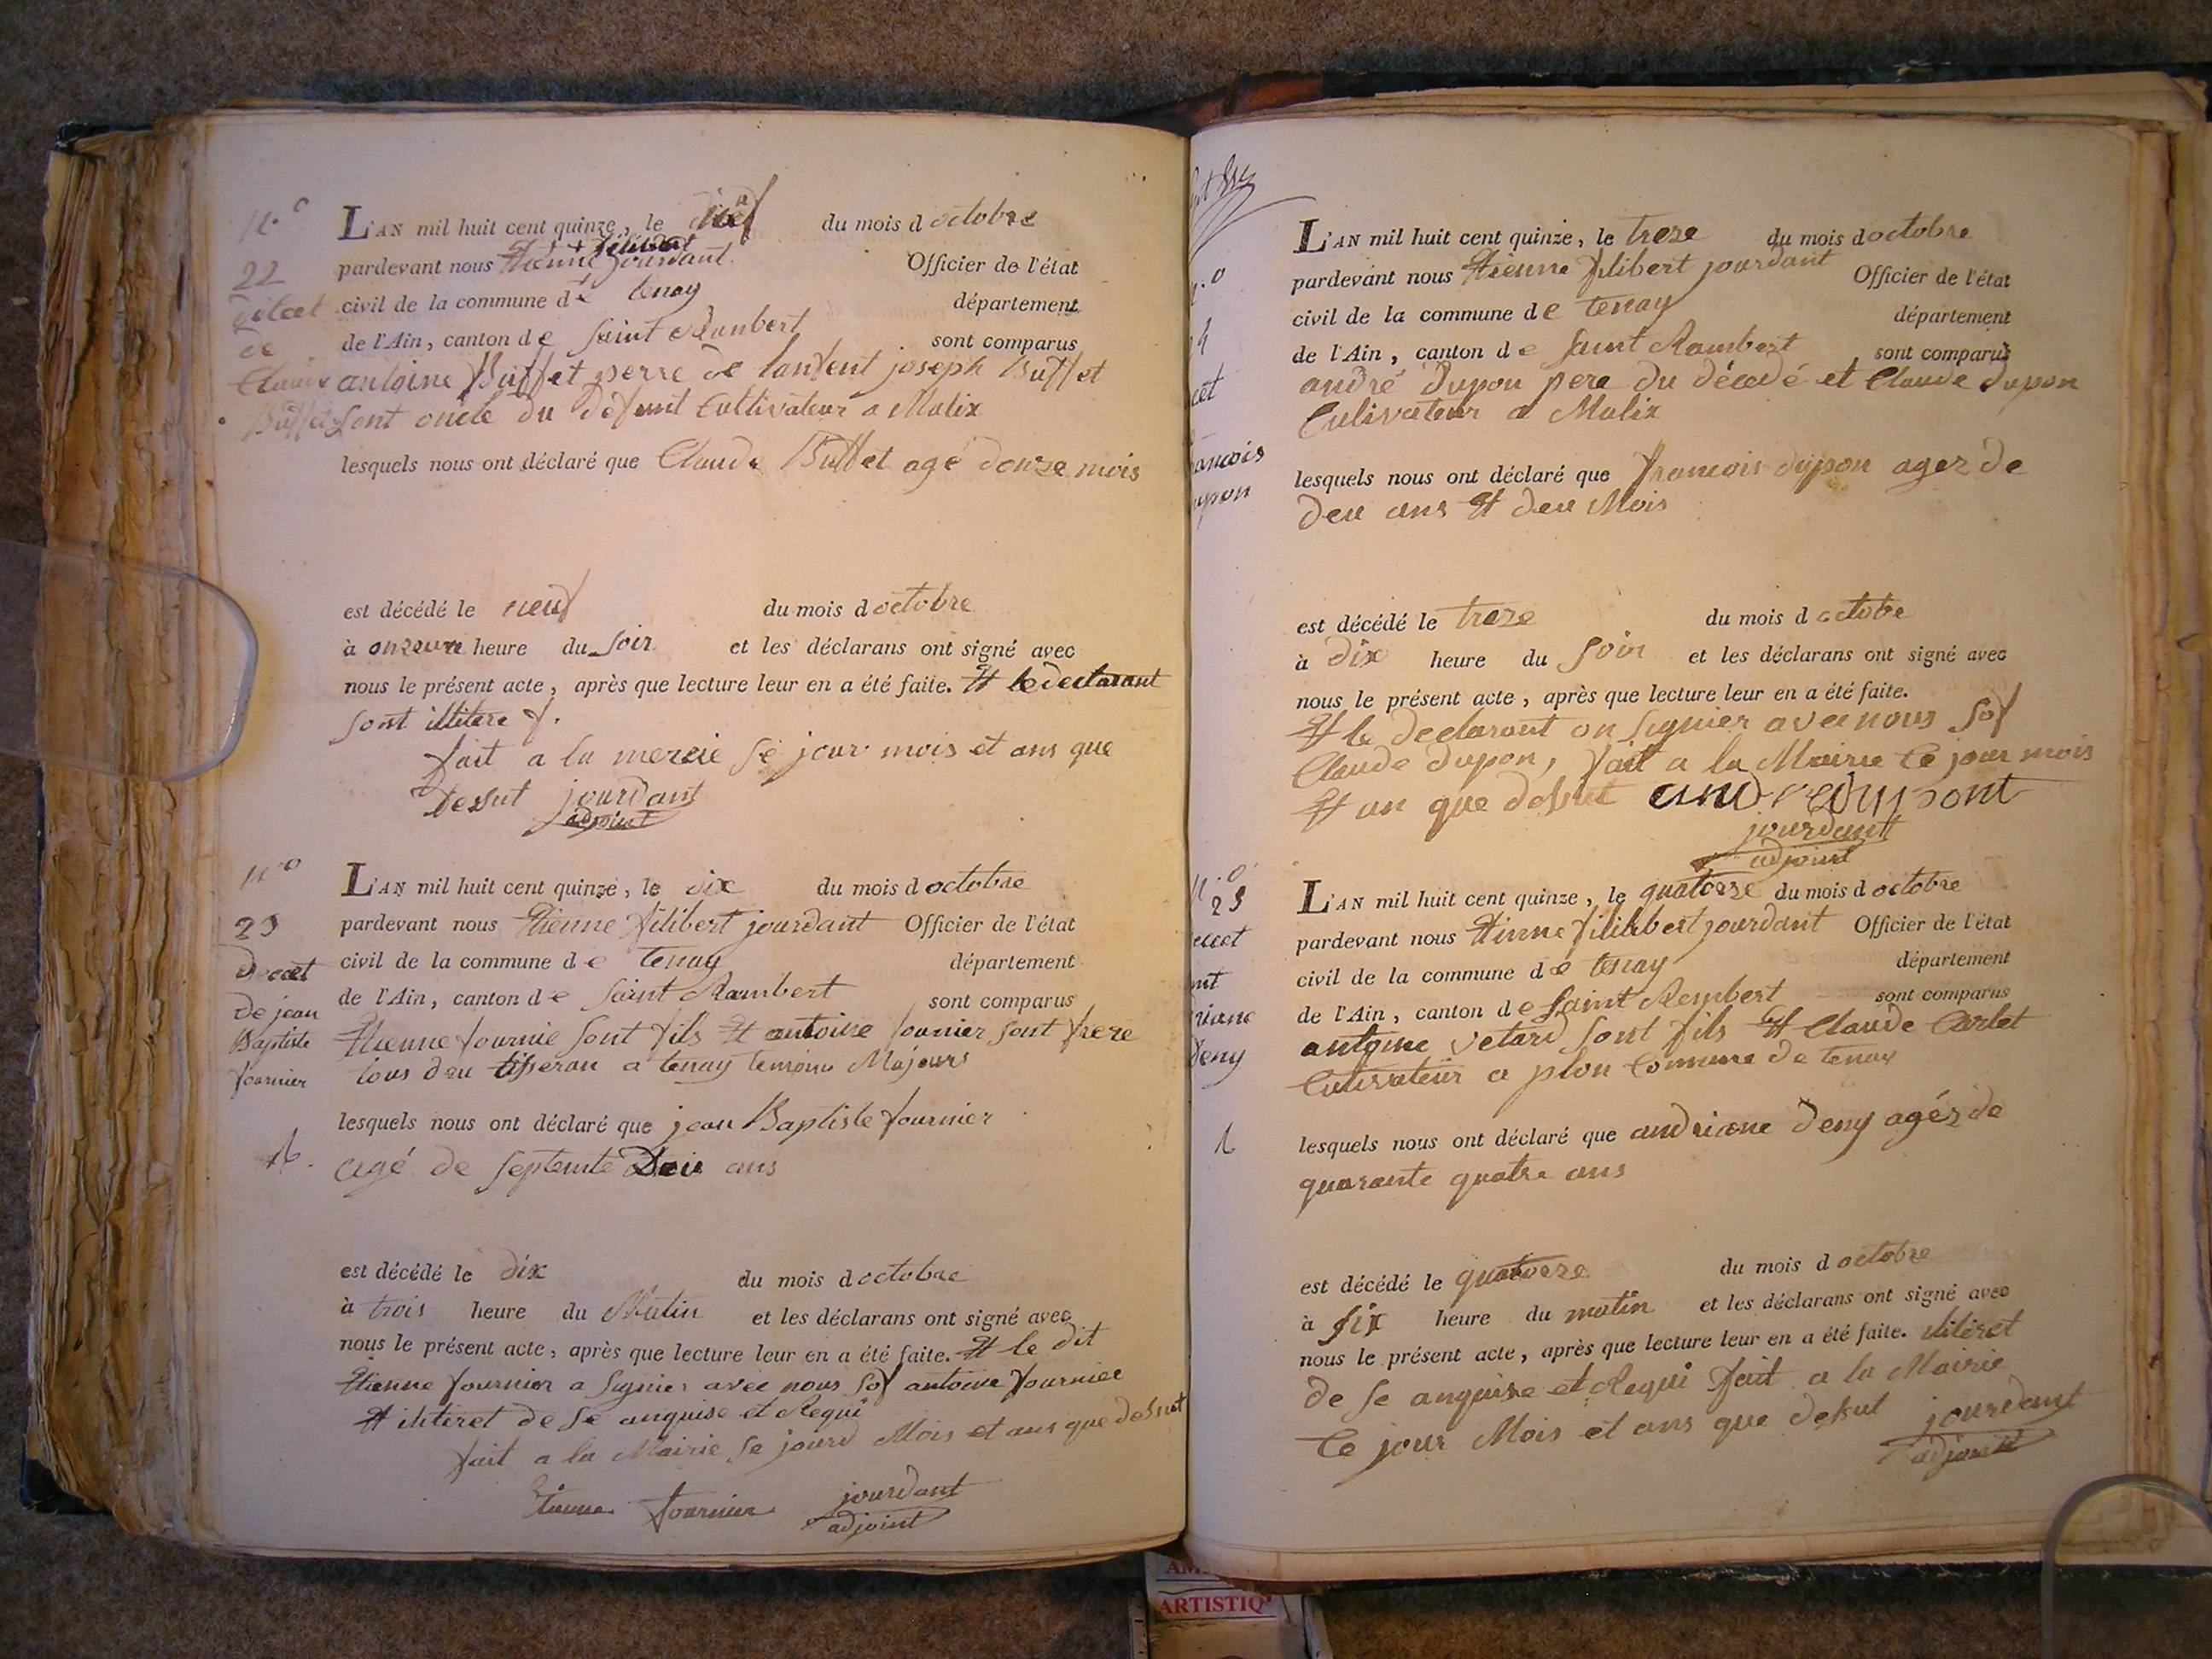 n.o
22
de
Claude
Buffet
L'AN mil huit cent quinze, le du mois d octobre
pardevant nous Etienne filibert jourdant Officier de l'état
civil de la commune de tenay département
de l'Ain, canton de saint Rambert sont comparus
antoine Buffet perre de lanfent joseph Buffet
sont oncle du defunt Cultivateur a Malix
lesquels nous ont déclaré que Claude Buffet agé douze mois
est décédé le neuf du mois d octobre
à heure du soir et les déclarans ont signé avec
nous le présent acte, après que lecture leur en a été faite. Et le declarant
sont illitere
fait a la mereie se jour mois et ans que
dessut jourdant
adjoint
n.o
23
Decet
De jean
Baptiste
fournier
L'AN mil huit cent quinze, le dix du mois d octobre
pardevant nous Etienne filibert jourdant Officier de l'état
civil de la commune de tenay département
de l'Ain, canton de saint Rambert sont comparus
Etienne fournie sont fils Et antoine fournier sont frere
tous deu tisseran a tenay temoins Majeurs
lesquels nous ont déclaré que jean Baptiste fournier
agé de septente Deu ans
est décédé le dix du mois d octobre
à trois heure du Matin et les déclarans ont signé avec
nous le présent acte, après que lecture leur en a été faite. Et le dit
Etienne fournier a signier avec nous sof antoine fournier
Et iliteret de se anquise et Requi
fait a la Mairie se jourd Mois et ans que dessut
Etienne fournier jourdant
adjoint
n.o
24
cet
ancois
upon
L'AN mil huit cent quinze, le treze du mois d octobre
pardevant nous Etienne filibert jourdant Officier de l'état
civil de la commune de tenay département
de l'Ain, canton de saint Rambert sont comparus
andré dupon pere du décedé et Claude dupon
Culivateur a Malix
lesquels nous ont déclaré que francois dupon agez de
deu ans Et deu Mois
est décédé le treze du mois d octobe
à dix heure du soir et les déclarans ont signé avec
nous le présent acte, après que lecture leur en a été faite.
Et le declarant on signier avec nous sof
Claude dupon, fait a la Mairie ce jour mois
Et an que dessut andre dupont
jourdant
adjoint
n.o
25
ecet
riane
deny
L'AN mil huit cent quinze, le quatorze du mois d octobre
pardevant nous Etienne filibert jourdant Officier de l'état
civil de la commune de tenay département
de l'Ain, canton de saint Rembert sont comparus
antoine vetard sont fils Et Claude Carlet
Cutivateur a plon Commune de tenay
lesquels nous ont déclaré que andriane deny agéz de
quarante quatre ans
est décédé le du mois d octobre
à six heure du matin et les déclarans ont signé avec
nous le présent acte, après que lecture leur en a été faite. iliteret
de se anquise et Requi fait a la Mairie
Ce jour Mois et ans que dessut jourdant
adjoint
ARTISTIQ